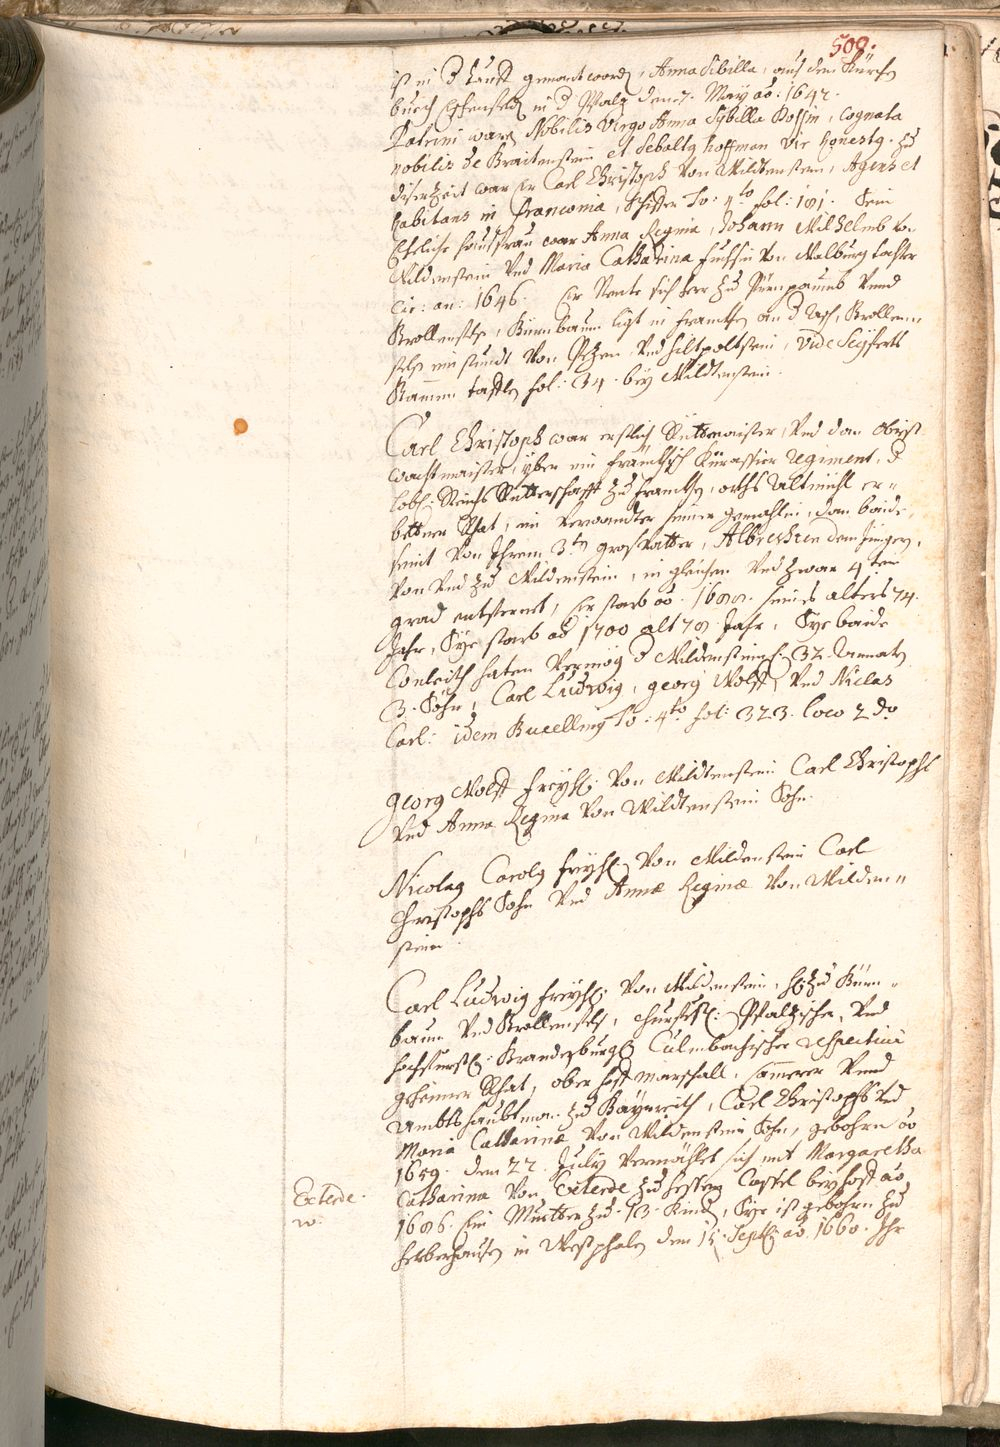 509.
ist in d Tauff genant word, Anna Sibilla, aus dem Kürch
buech Ehenfeld in d Pfalz den 7. May aõ: 1642.
Patrini ware Nobilis Virgo Anna Sybilla Possin, Cognata
nobilis de Braitenstein et Sebaltg Hoffman vir honestg. Zu
diser Zeit war Er Carl Christoph Von Wildenstein, Agens et
habitans in Franconia, To: 4to fol: 181. Sein
Eheliche hausfrau war Anna Regina, Johann Wilhelmb von
Wildenstein Und Maria Catharina Fuchsin Von Walburg tochter
Cir: an: 1646. Er Nente sich herr Zu Pürnpaumb Vnnd
Krollenstein, Bürnbaum ligt in Francken an d Krollen=
ein stundt Von Pezen Und Hiltpoltstein, Vide Seyferts
Stammen taffle fol: 34. bey Wildtenstein.
Carl Christoph war erstlich Rüttmaister, Und dan Obrist
wachtmaister, über ein fränckisch Kürassier Regiment, d
lobl: Reichs Ritterschafft Zu francken, orths Altmühl er=
bettner Rhat, ein Verwandter seiner gemahlin, dan baide
seint Von Ihrem 3ten grosvatter, Albrechten dem Jüngern,
Von Und Zu Wildenstein, in gleichen Und Zwar 4ten
grad entfernet, Er starb aõ. 1688. seines alters 74.
Jahr, Sye starb aõ 1700 alt 78 Jahr, Sye baide
Conleith haten Vermög d Wildenstein: 32. Annaten
3. Söhn, Carl Ludwig, georg Wolff, Und Niclas
Carl: idem Bucelling To: 4to fol: 323. loco 2do
Georg Wolff freyh: Von Wildtenstein Carl Christophs
Und Anna Regina Von Wildtenstein Sohn.
Nicolag Carolg freyh: Von Wildenstein Carl
Christophs Sohn Und Annæ Reginæ Von Wilden=
stein
Carl Ludwig freyh: Von Wildenstein, H: Zu Bürn=
baum Und Krollenstein, churfürstl: Pfaltzischer, Und
hochfürstl: Brandenburg Culmbachischer respective
geheimer Rhat, ober hoff marschall, Camerer Vnnd
Ambtshaubtman Zu Bayreith, Carl Christophs Und
Maria Catharinæ Von Wildenstein Sohn, gebohrn aõ
1659. den 22. July Vermählet sich mit Margaretha
Catharina Von Exterde Zu hessen Cassel bey hoff aõ
1686. Ein Muetter Zu 13. Kind, Sye ist gebohrn Zu
Herberhausen in Westphalen den 15. Sept: aõ. 1660. Ihr
Exterde.
w.